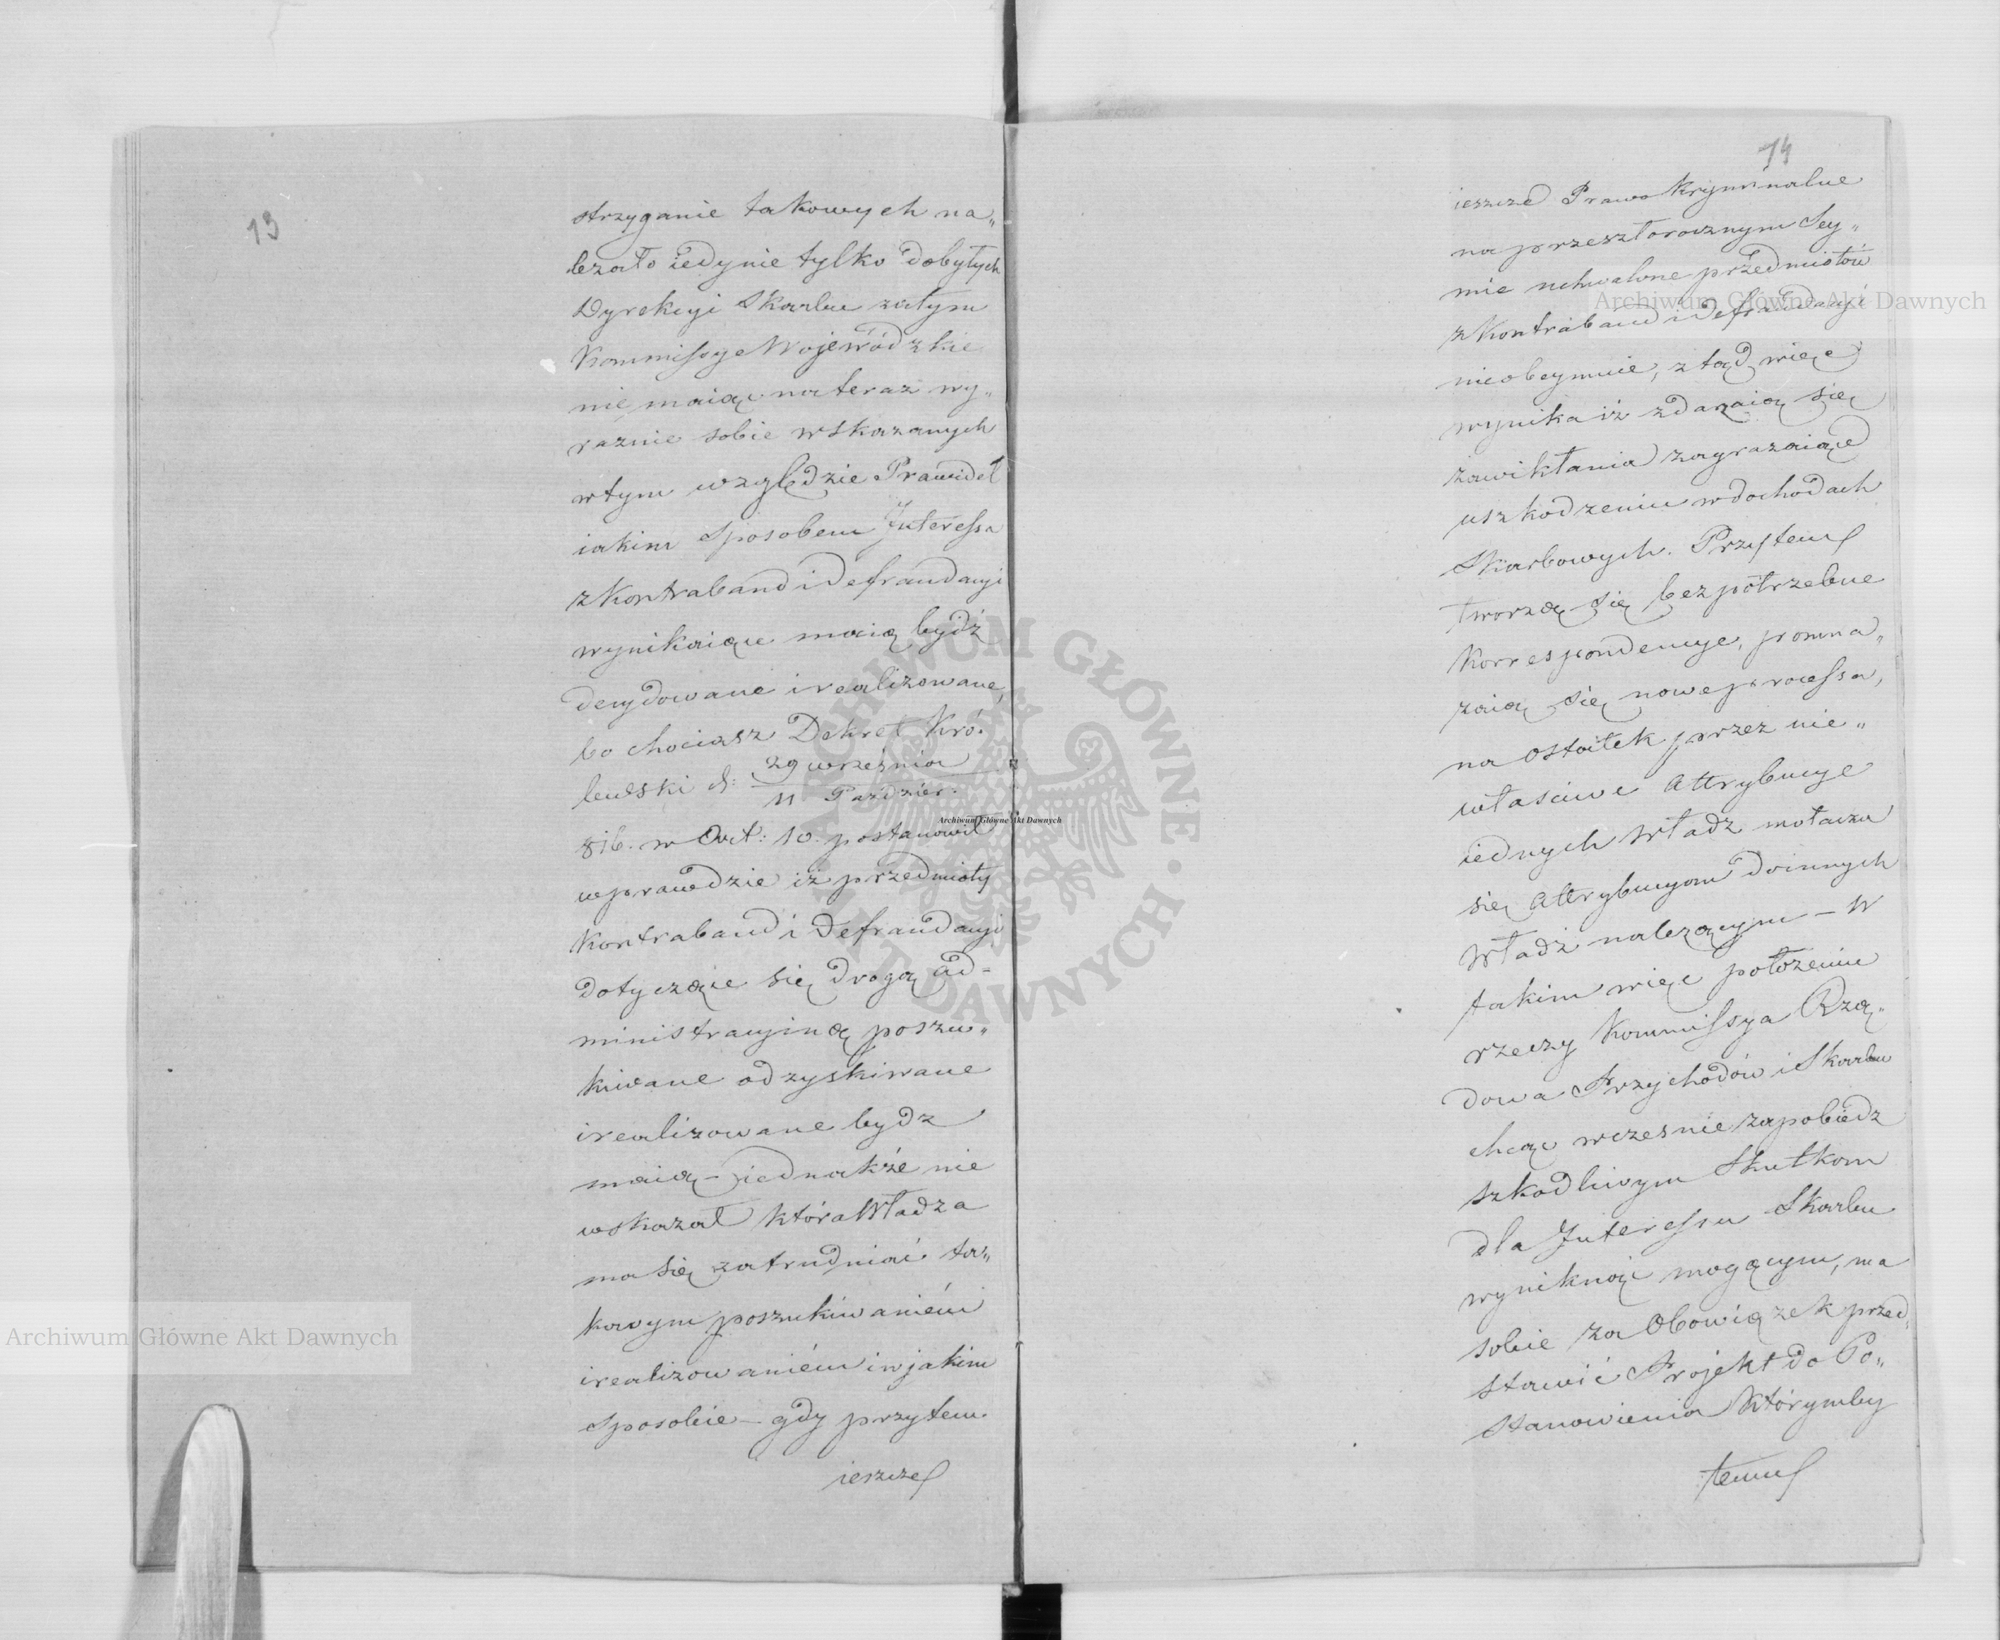 13
strzyganie takowych na„
lezało iedynie tylko dobyłych
Dyrekcyi Skarbu zatym
Kommissye Wojewódzkie
nie maiąc na teraz wy„
raznie sobie wskazanych
w tym względzie Prawideł
iakim Sposobem Interessa
z Kontraband i Defraudacyi
wynikaiące maią bydź
decydowane i realizowane,
bo chociasz Dekret Kró„
lewski d: 29 września
11 Paździer:
816. w Art: 10. postanowił
wprawdzie iż przedmioty
Kontraband i Defraudacyi
dotyczące się drogą ad=
ministracyiną poszu„
kiwane odzyskiwane
i realizowane bydz
maią – jednakże nie
wskazał która Władza
ma się zatrudniać ta„
kowym poszukiwaniém
i realizowaniém i w jakim
Sposobie – gdy przytem
ieszcze
14
ieszcze Prawo Kryminalne
na przeszłorocznym Sey„
mie uchwalone przedmiotów
z Kontraband i Defraudacyi
nieobeymuie, ztąd więc
wynika iż zdarzaią się
zawikłania zagrazaiące
uszkodzeniu w dochodach
Skarbowych. Przytem
tworzą się bezpotrzebne
Korrespondencye, pomna„
zaią się nowe processa,
na ostatek przez nie„
właściwe Attrybucye
iednych Władz motacza
się Attrybucyom drinnych
Władz nalezącym – W
takim więc połozeniu
rzeczy Kommissya Rzą„
dowa Przychodów i Skarbu
chcąc wczesnie zapobiedz
szkodliwym Skutkom
dla Interessu Skarbu
wyniknąć mogącym, ma
sobie za Obowiązek przed„
stawić Projekt do Po„
stanowienia którymby
temu
Archiwum Główne Akt Dawnych
Archiwum Główne Akt Dawnych
Archiwum Główne Akt Dawnych
ARCHIWUM GŁÓWNE · AKT DAWNYCH ·